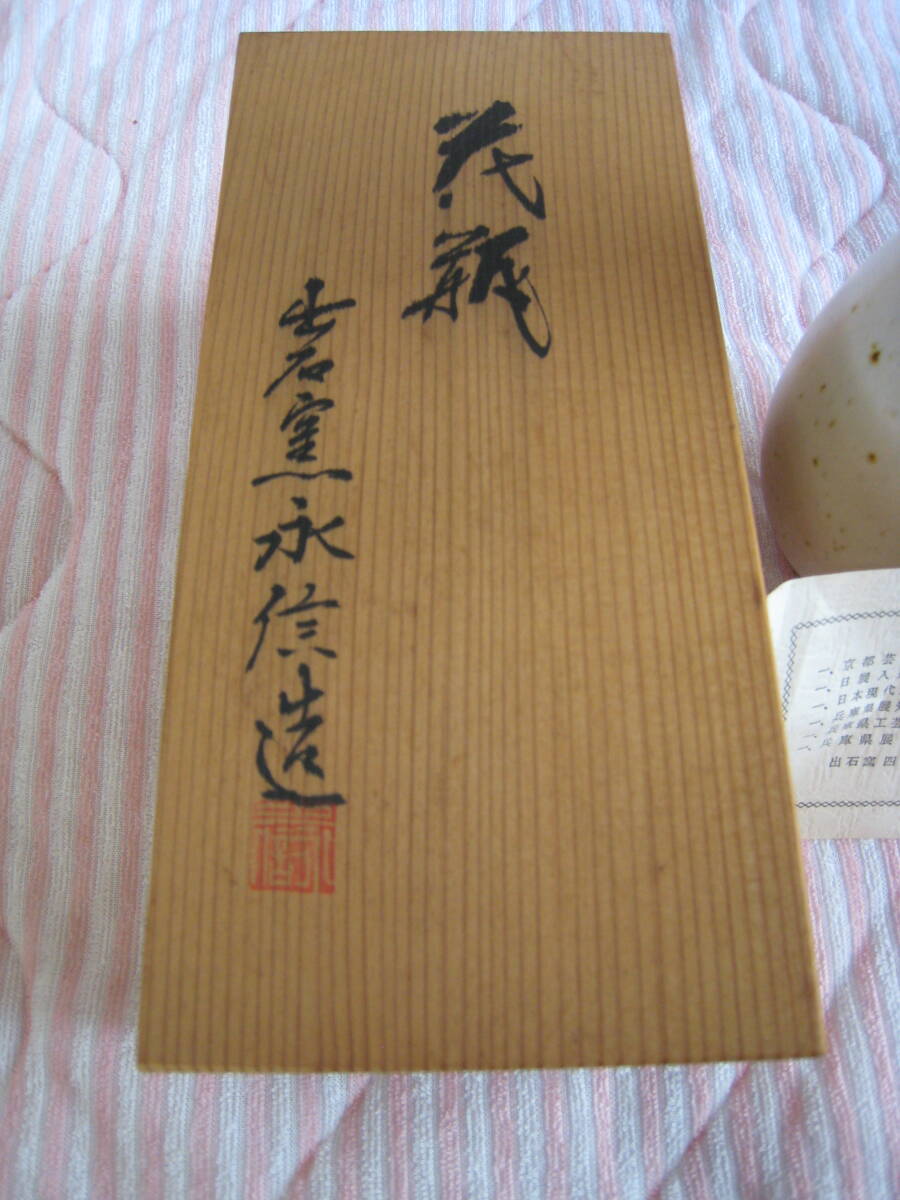 花瓶
出石窯永信造
一、京都芸
一、日展入
一、日本現代
一、兵庫県展
一、兵庫県工芸
一、兵庫県展
出石窯四